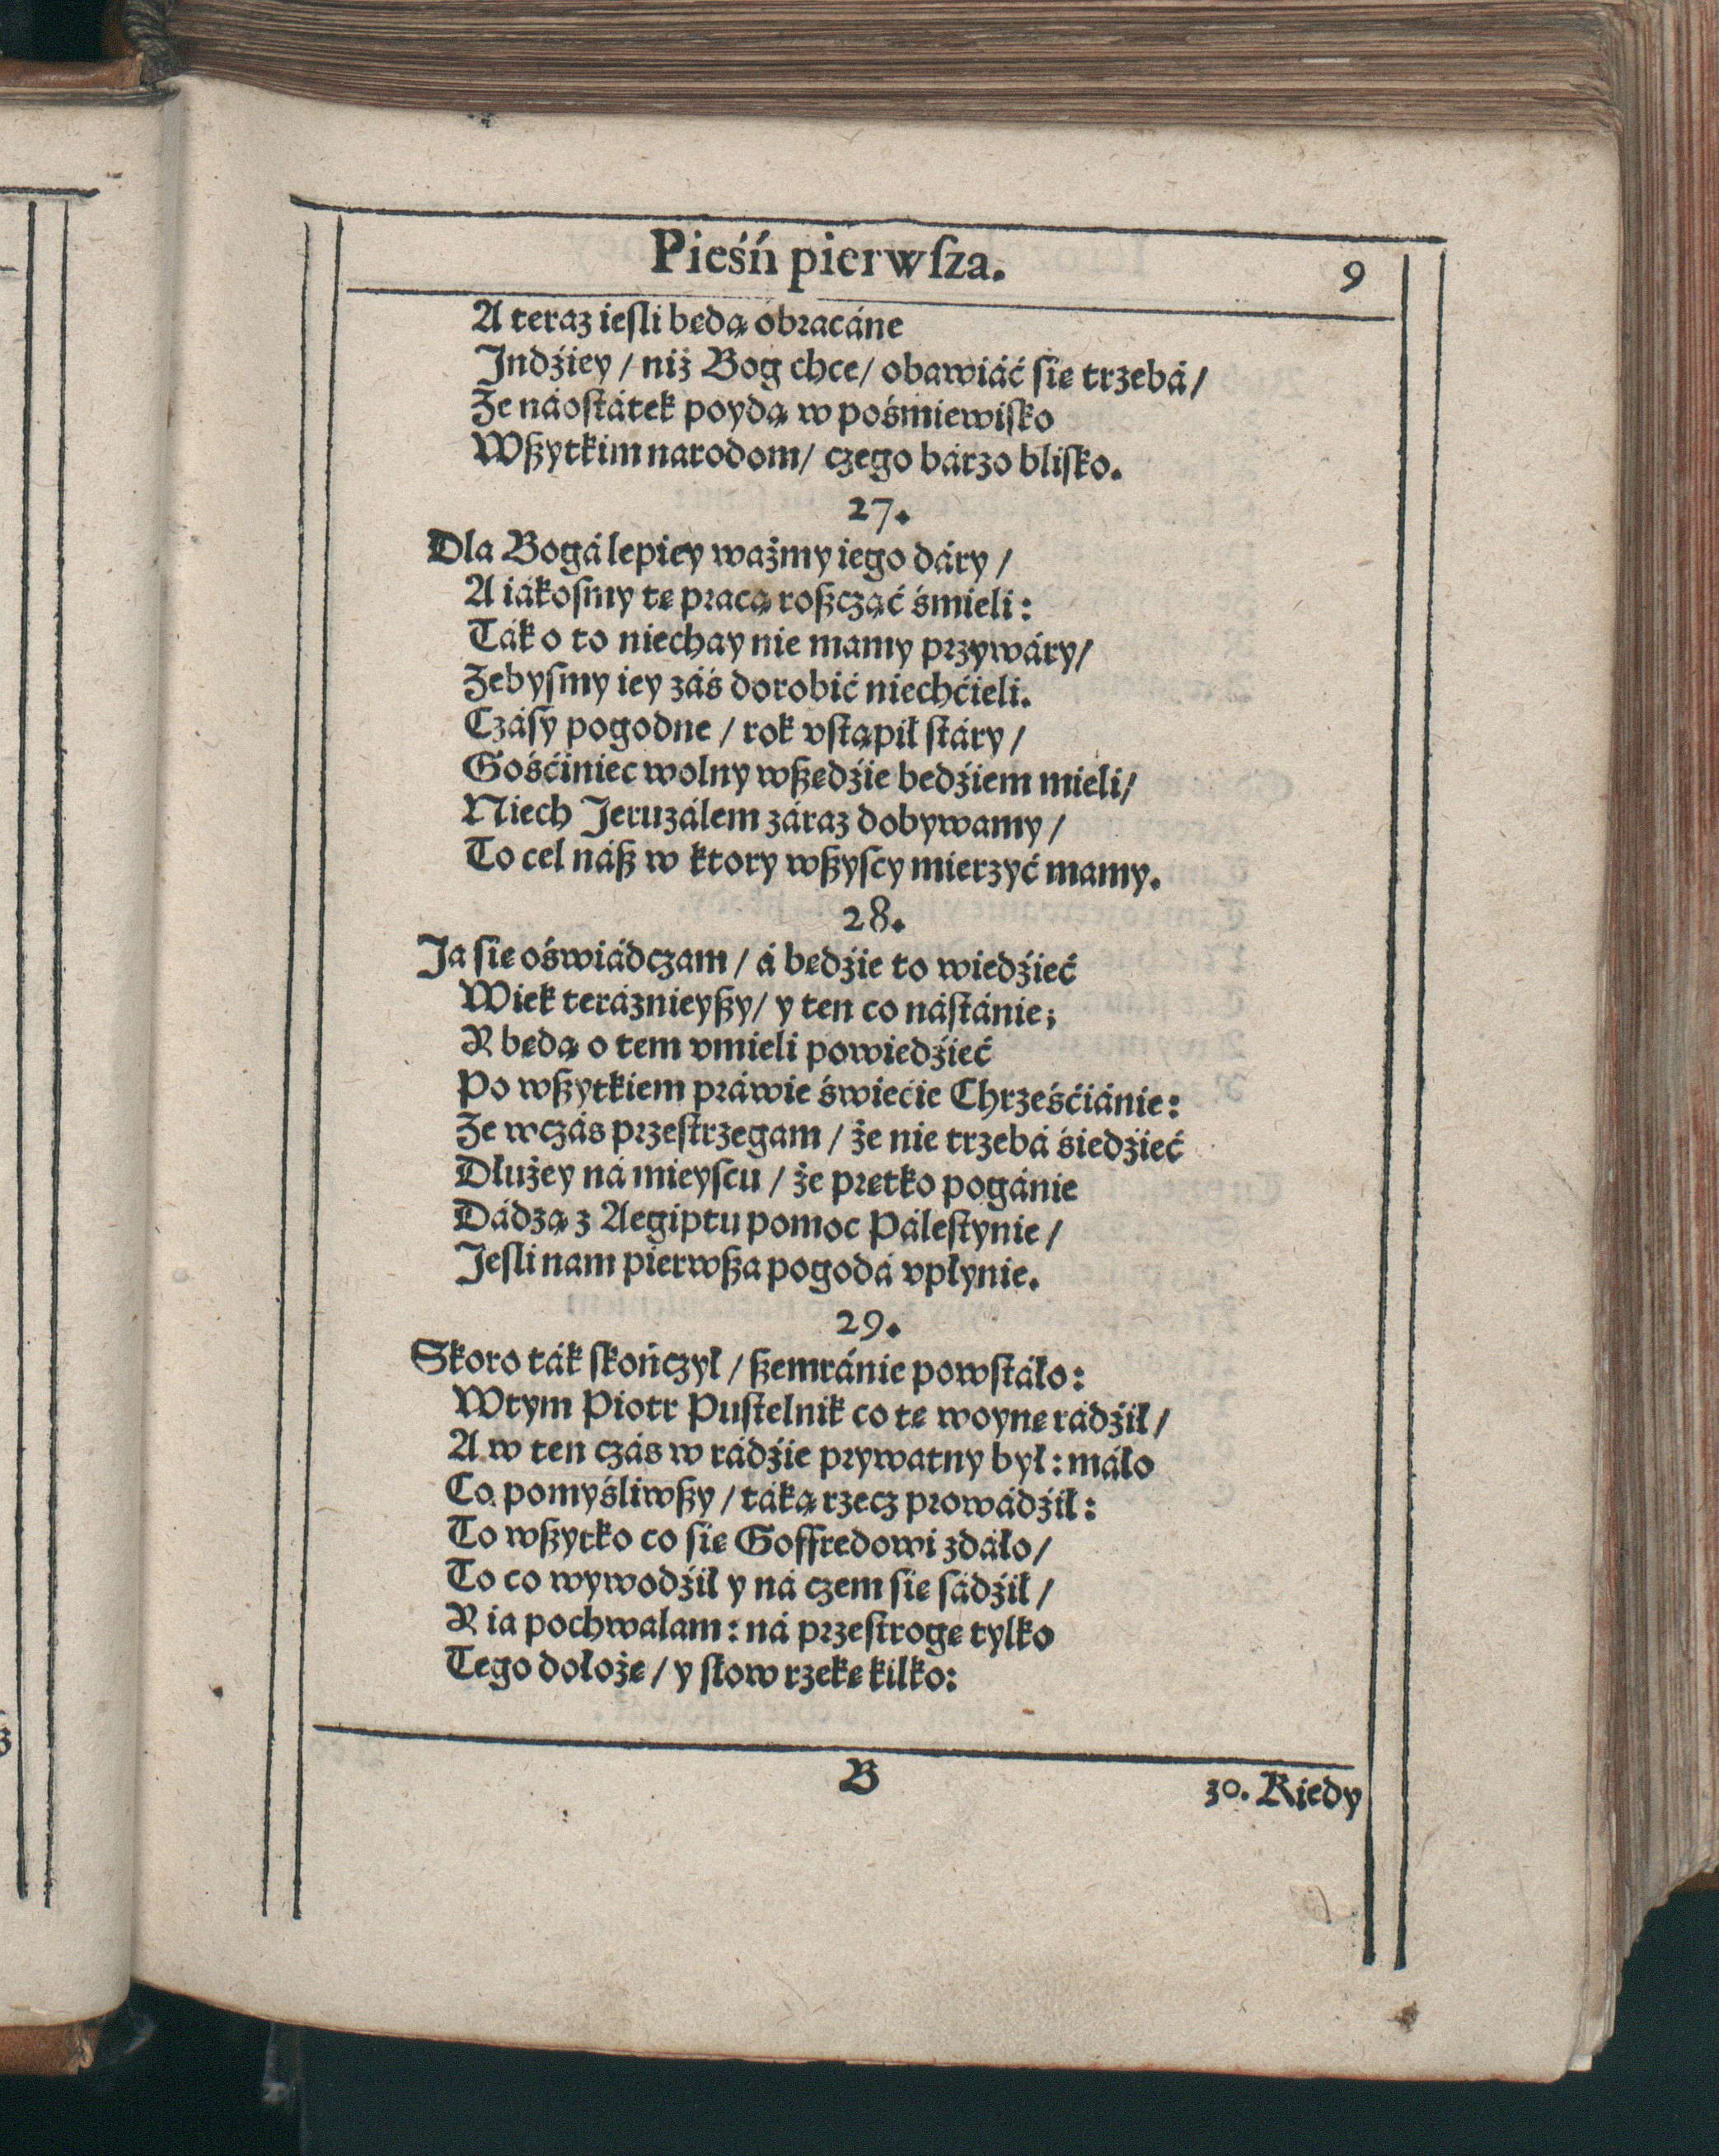 Pieśń pierwſza. 9
A teraz ieſli będą obracáne
Jndźiey / niż Bog chce / obawiáć ſię trzebá /
Że náoſtátek poydą w pośmiewiſko
Wßytkim narodom / czego bárzo bliſko.
27.
Dla Bogá lepiey ważmy iego dáry /
A iákoſmy tę pracą roßcząć śmieli:
Ták o to niechay nie mamy przywáry /
Żebyſmy iey záś dorobić niechćieli.
Czáſy pogodne / rok vſtąpił ſtáry /
Gośćiniec wolny wßędźie będźiem mieli /
Niech Jeruzálem záraz dobywamy /
To cel náß w ktory wßyſcy mierzyć mamy.
28.
Ja ſię oświádczam / á będźie to wiedźieć
Wiek teráznieyßy / y ten co náſtánie;
Y będą o tem vmieli powiedźieć
Po wßytkiem práwie świećie Chrześćiánie:
Że wczás przeſtrzegam / że nie trzebá śiedźieć
Dłużey ná mieyſcu / że prętko pogánie
Dádzą z Aegiptu pomoc Páleſtynie /
Jeſli nam pierwßa pogodá vpłynie.
29.
Skoro ták ſkończył / ßemránie powſtáło:
Wtym Piotr Puſtelnik co tę woynę rádźił /
A w ten czás w rádźie prywatny był: máło
Co pomyśliwßy / táką rzecz prowádźił:
To wßytko co ſię Goffredowi zdáło /
To co wywodźił y ná czem ſię ſádźił /
Y ia pochwalam: ná przeſtrogę tylko
Tego dołożę / y ſłow rzekę kilko:
B
30. Kiedy